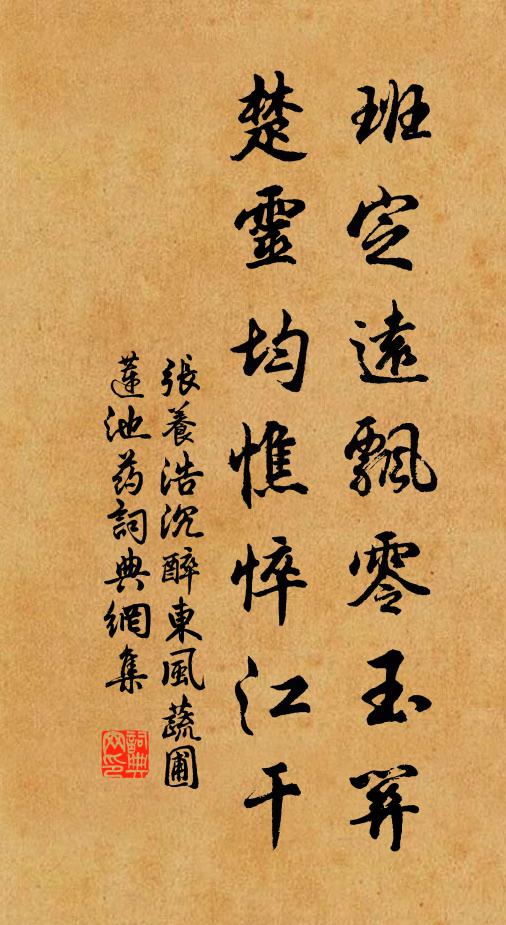 班定遠飄零玉關
楚靈均憔悴江干
張養浩沉醉東風蔬圃
蓮池药詞典網集
詞典网印